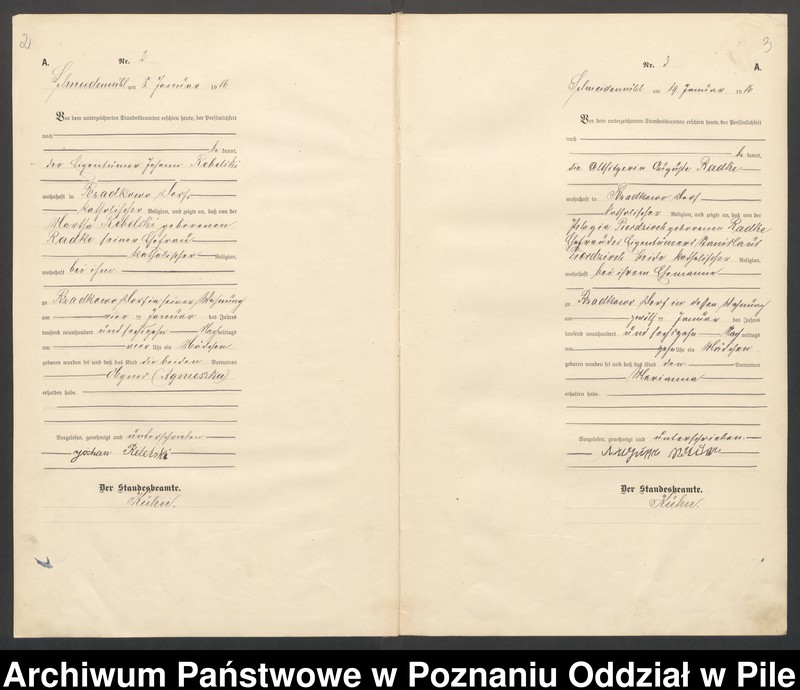 2
A.
Nr. 2
Schneidemühl am 5. Januar 1916
Vor dem unterzeichneten Standesbeamten erschien heute, der Persönlichkeit
nach
be kannt,
der Eigentümer Johann Rebelski
wohnhaft in Brodkowo Dorf
katholischer Religion, und zeigte an, daß von der
Martha Rebelski geborenen
Radke seiner Ehefrau
katholischer Religion,
wohnhaft bei ihm
zu Dorf in seiner Wohnung
am vier ten Januar des Jahres
tausend neunhundert und sechszehn Nachmittags
um vier Uhr ein Mädchen
geboren worden sei und daß das Kind die beiden Vornamen
Agnes (Agnieszka)
erhalten habe.
Vorgelesen, genehmigt und unterschrieben
Der Standesbeamte.
Kühn.
3
Nr. 3
A.
Schneidemühl am 19. Januar 1916
Vor dem unterzeichneten Standesbeamten erschien heute, der Persönlichkeit
nach
be kannt,
die Altsitzerin Auguste Radke
wohnhaft in Dorf
katholischer Religion, und zeigte an, daß von der
Pelagia geborenen Radke
Ehefrau des Eigentümers Stanislaus
beide katholischer Religion,
wohnhaft bei ihrem Ehemanne
zu Dorf in dessen Wohnung
am zwölf ten Januar des Jahres
tausend neunhundert und sechszehn Nachmittags
um zehn Uhr ein Mädchen
geboren worden sei und daß das Kind den Vornamen
Marianna
erhalten habe.
Vorgelesen, genehmigt und unterschrieben.
Der Standesbeamte.
Kühn.
Archiwum Państwowe w Poznaniu Oddział w Pile